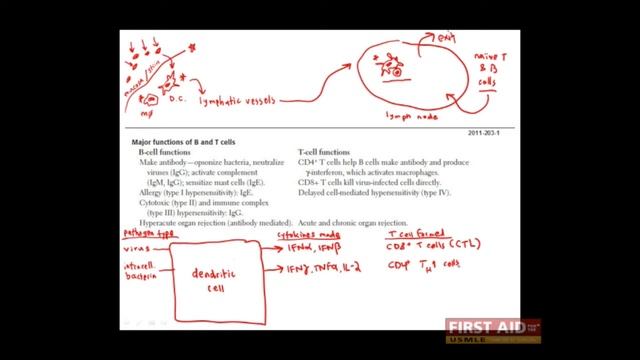 exit
naïve T
& B
cells
mucosa/skin
mφ
D.C.
lymphatic vessels
lymph node
2011-203-1
Major functions of B and T cells
B-cell functions
Make antibody—opsonize bacteria, neutralize
viruses (IgG); activate complement
(IgM, IgG); sensitize mast cells (IgE).
Allergy (type I hypersensitivity): IgE.
Cytotoxic (type II) and immune complex
(type III) hypersensitivity: IgG.
Hyperacute organ rejection (antibody mediated).
T-cell functions
CD4+ T cells help B cells make antibody and produce
γ-interferon, which activates macrophages.
CD8+ T cells kill virus-infected cells directly.
Delayed cell-mediated hypersensitivity (type IV).
Acute and chronic organ rejection.
pathogen type
cytokines made
T cell formed
virus
IFNα, IFNβ
CD8+ T cells (CTL)
intracell.
bacterium
dendritic
cell
IFNγ, TNFα, IL-2
CD4+ TH1 cells
FIRST AID FOR THE
USMLE